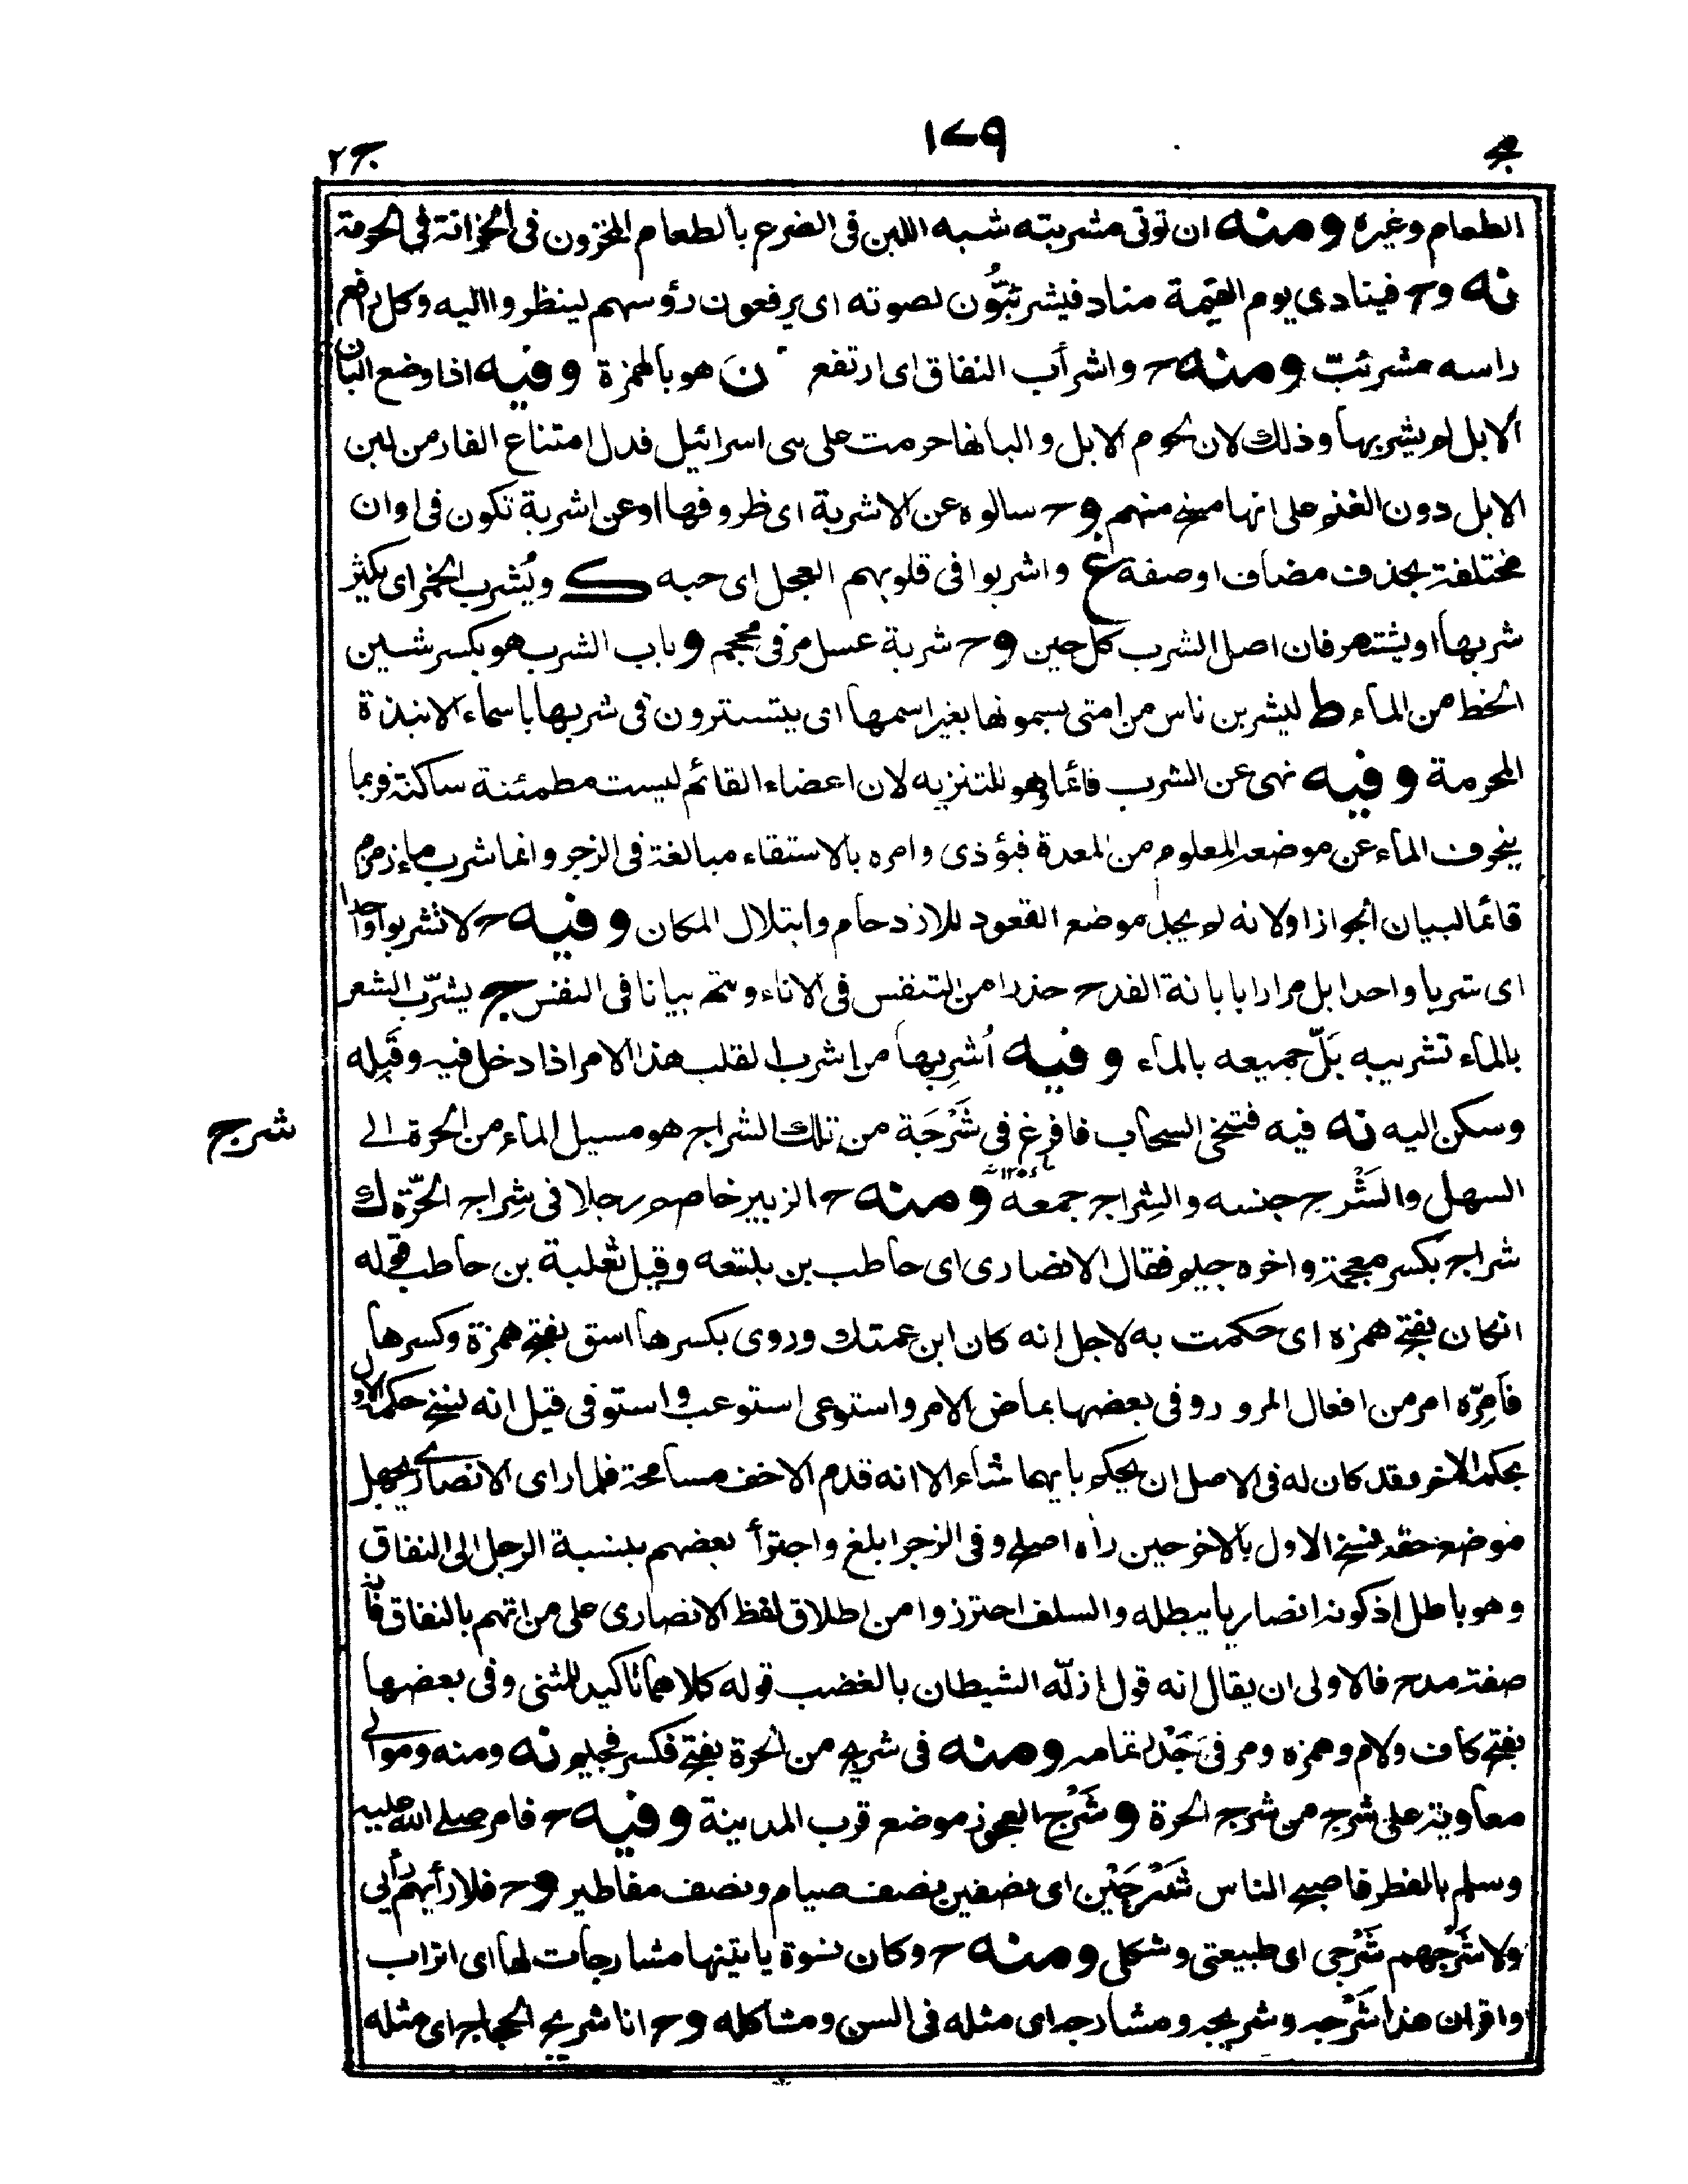 ج
١٧٩
ج ٢
الطعام وغيره ومنه ان توتى مشربته شبه اللبن فى الضرع بالطعام المخزون فى الخزانة فى الحرمة
نه وح فينادى يوم القيمة مناد فيشرئبُّون لصوته اى يرفعون رؤسهم لينظروا اليه وكل رافع
راسه مشرئبّ ومنه ح واشرأب النفاق اى ارتفع ن هو بالهمزة وفيه اذا وضع البان
الابل لم يشربها وذلك لان لحوم الابل والبانها حرمت على بنى اسرائيل فدل امتناع الفار من لبن
الابل دون الغنم على انها مسخ منهم وح سالوه عن الاشربة اى ظروفها او عن اشربة تكون فى اوان
مختلفة بحذف مضاف او صفة غ واشربوا فى قلوبهم العجل اى حبه ك ويُشرب الخمر اى يكثر
شربها او يشتهر فان اصل الشرب كل حين وح شربة عسل مر فى محجم وباب الشرب هو بكسر شين
الحظ من الماء ط ليشربن ناس من امتى يسمونها بغير اسمها اى يتسترون فى شربها باسماء الانبذة
المحرمة وفيه نهى عن الشرب قائما وهو للتنزيه لان اعضاء القائم ليست مطمئنة ساكنة فربما
ينحرف الماء عن موضعه المعلوم من المعدة فيؤذى وامره بالاستقاء مبالغة فى الزجر وانما شرب ماء زمزم
قائما لبيان الجواز اولانه لم يجد موضع القعود للازدحام وابتلال المكان وفيه ح لا تشربوا واحدا
اى شربا واحدا بل مرارا بابانة القدح حذرا من التنفس فى الاناء وتتمه بيانا فى النفس ج يشرّب الشعر
بالماء تشريبه بَلّ جميعه بالماء وفيه اُشرِبها من اشرب القلب هذا الامر اذا دخل فيه وقَبِله
وسكن اليه نه فيه فتنحى السحاب فافرغ فى شَرْجَة من تلك الشراج هو مسيل الماء من الحرة الى
شرج
السهل والشَرْج جنسه والشِراج جمعه ومنه ح الزبير خاصم رجلا فى شِراج الحَرّة ك
شراج بكسر معجمة واخره جيم فقال الانصارى اى حاطب بن بلتعه وقيل ثعلبة بن حاطب قوله
ان كان بفتح همزه اى حكمت به لاجل انه كان ابن عمتك وروى بكسرها اسق بفتح همزة وكسرها
فاَمِرّه امر من افعال المرور وفى بعضها بماض الامر واستوعى استوعب واستوفى قيل انه نسخ حكمه الاول
بحكمه الاخر وقد كان له فى الاصل ان يحكم بايهما شاء الا انه قدم الاخف مسامحة فلما راى الانصارى يجهل
موضع حقه فنسخ الاول بالاخر حين رأه اصلح وفى الزجر ابلغ واجترأ بعضهم بنسبة الرجل الى النفاق
وهو باطل اذ كونه انصاريا يبطله والسلف احترزوا من اطلاق لفظ الانصارى على من اتهم بالنفاق فانه
صفة مدح فالاولى ان يقال انه قول ازلّه الشيطان بالغضب قوله كلاهما تاكيد للمثنى وفى بعضها
بفتح كاف ولام وهمزه ومر فى جَدْر تمامه ومنه فى شريج من الحرة بفتح فكسر فجيم نه ومنه وموالى
معاوية على شرج من شرج الحرة وشَرْج العجوز موضع قرب المدينة وفيه ح فامر صلى الله عليه
وسلم بالفطر فاصبح الناس شَرْجَيْن اى نصفين نصف صيام ونصف مفاطير وح فلا رأيهم رأيى
ولا شَرْجهم شَرْجى اى طبيعتى وشكلى ومنه ح وكان نسوة ياتينها مشارجات لها اى اتراب
واقران هذا شَرْجه وشريجه ومشارجه اى مثله فى السن ومشاكله وح انا شريج الحجاج اى مثله